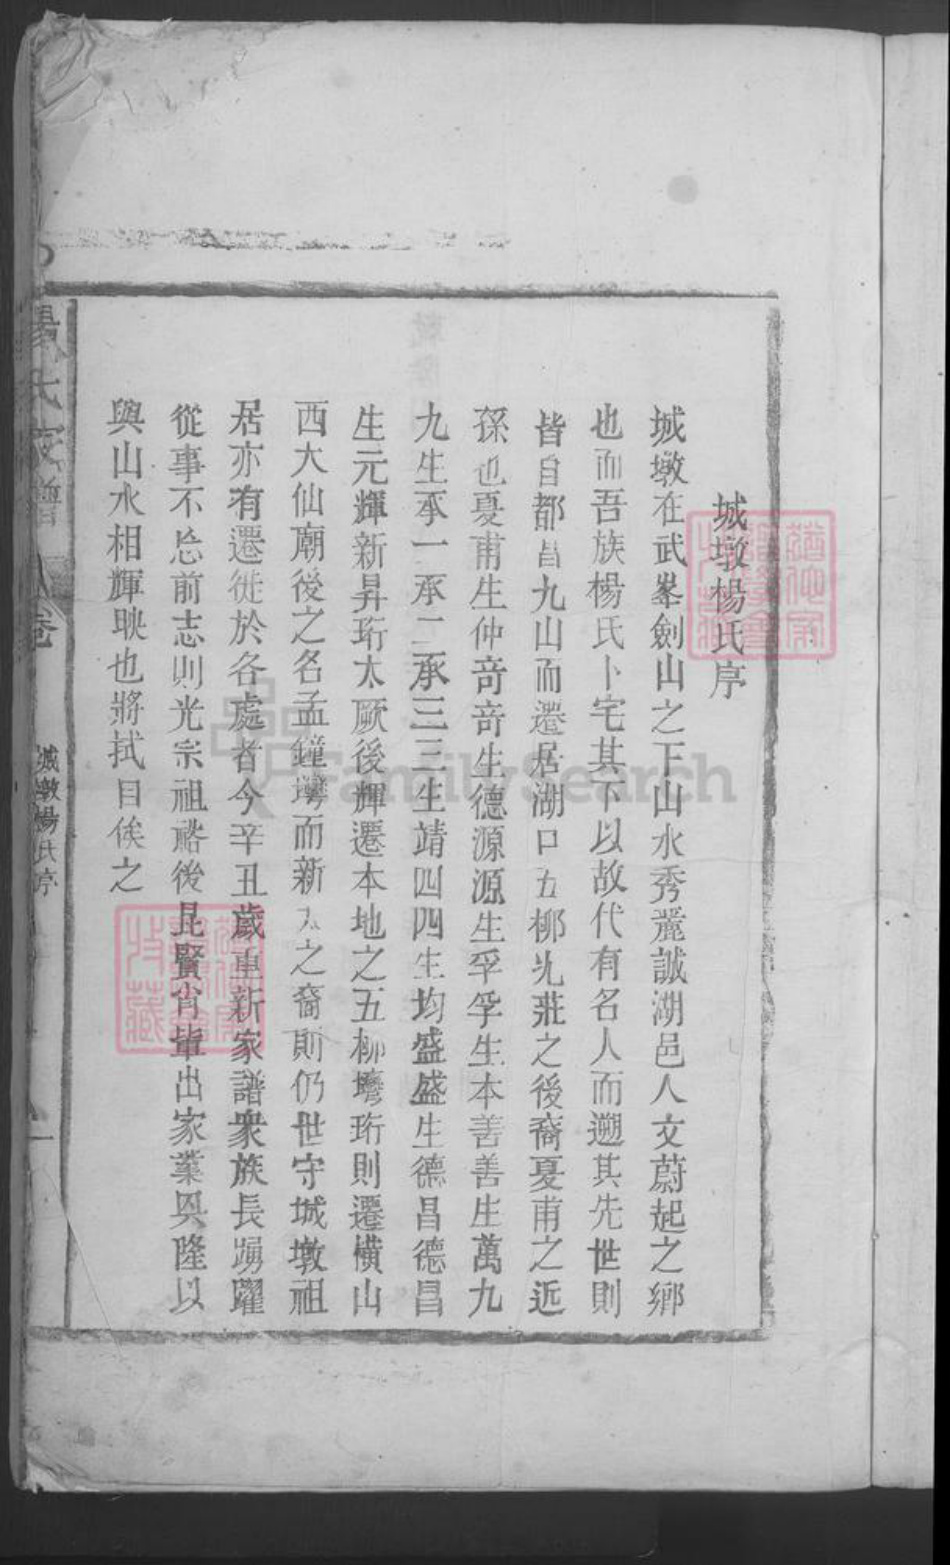 城墩楊氏序
城墩在武峯劍山之下山水秀麗誠湖邑人文蔚起之鄉
也而吾族楊氏卜宅其下以故代有名人而遡其先世則
皆自都昌九山而遷居湖口五柳光莊之後裔憂甫之近
孫也憂甫生仲竒竒生德源源生孚孚生本善善生萬九
九生承一承二承三三生靖四四生均盛盛生德昌德昌
生元輝新昇珩太厥後輝遷本地之五柳塆珩則遷橫山
西大仙廟後之名孟鐘塆而新太之裔則仍世守城墩祖
居亦有遷徙於各處者今辛丑歲重新家譜衆族長踴躍
從事不忘前志則光宗祖裕後昆賢肖輩出家業興隆以
與山水相輝映也將拭目俟之
楊氏家譜
卷
城墩楊氏序
一
FamilySearch